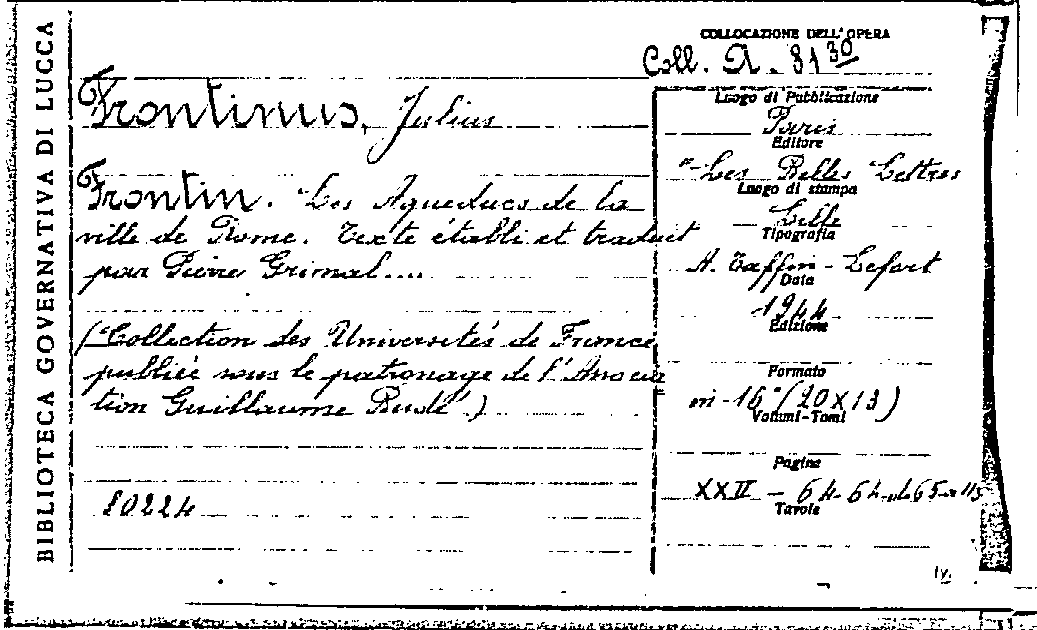 BIBLIOTECA GOVERNATIVA DI LUCCA
COLLOCAZIONE DELL'OPERA
Coll. A. 81 30
Frontinus, Julius
Frontin. Les Aqueducs de la
ville de Rome. Texte établi et traduit
par Pierre Grimal....
(Collection des Universités de France
publiée sous le patronage de l'Associa
tion Guillaume Budé)
20224
Luogo di Pubblicazione
Paris
Editore
"Les Belles Lettres
Luogo di stampa
Lille
Tipografia
A. Taffin-Lefort
Data
1944
Edizione
Formato
in-16° (20x13)
Volumi-Tomi
Pagine
64-64
Tavole